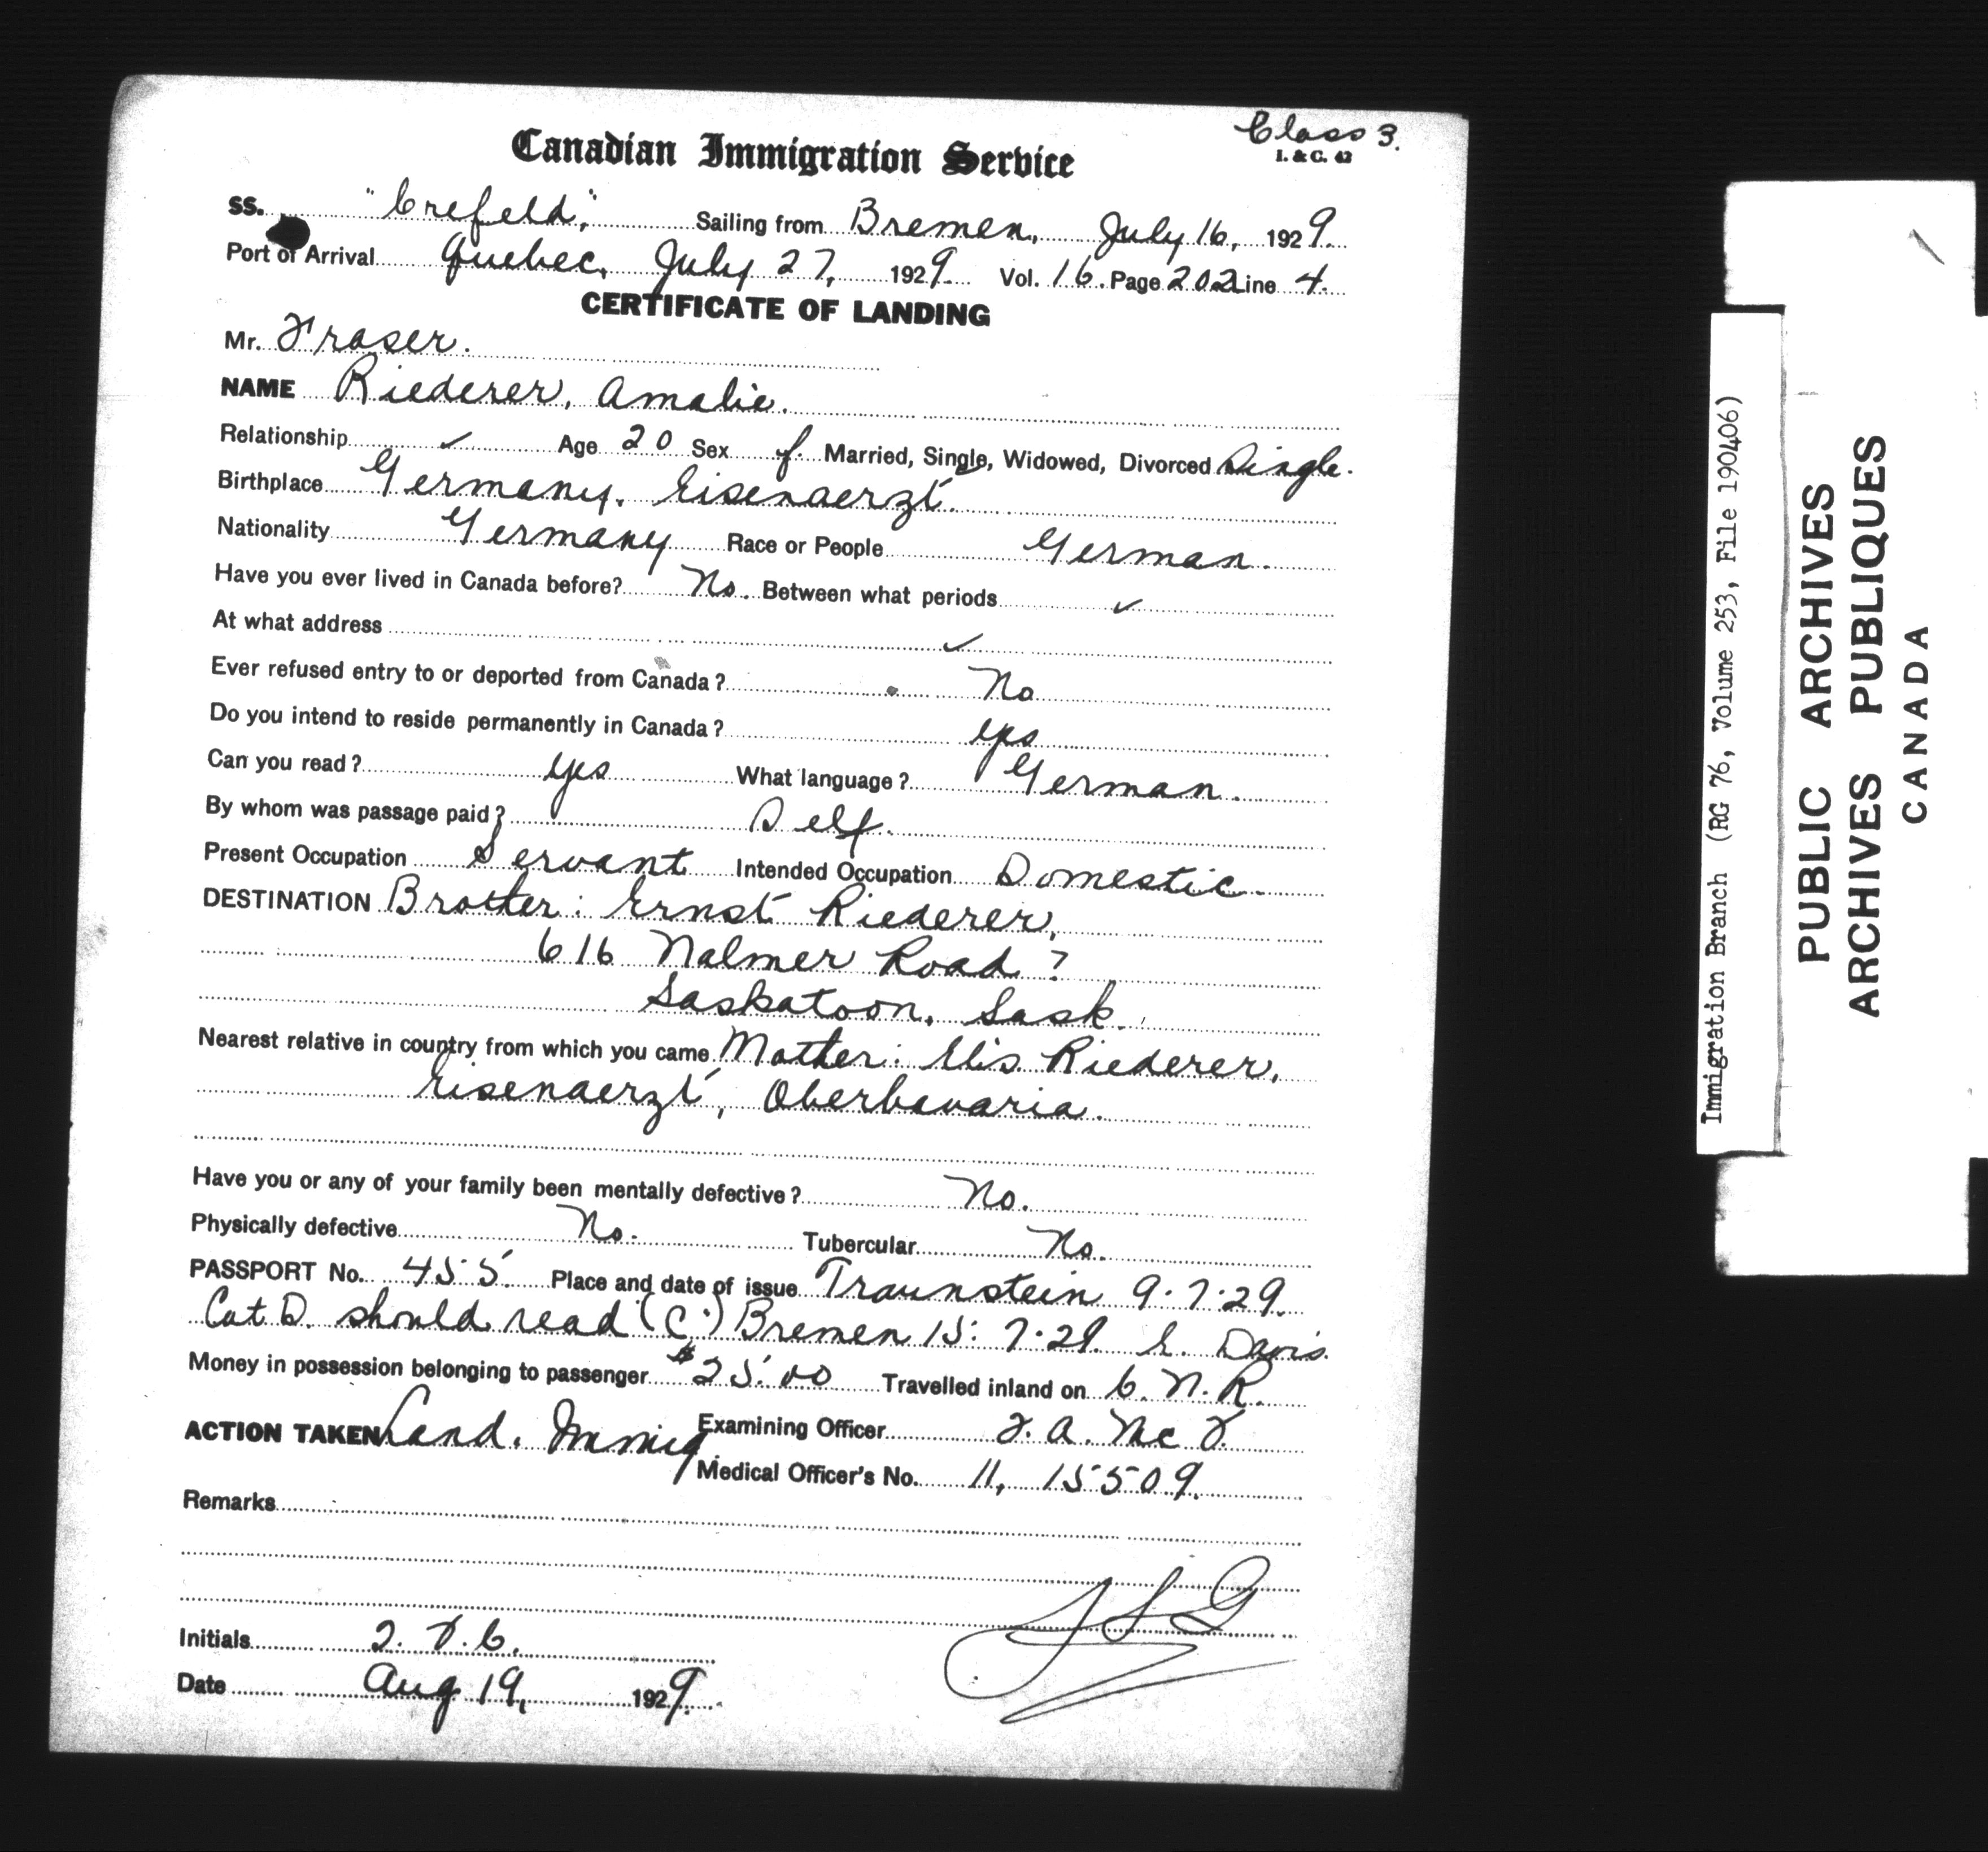 Class 3.
Canadian Immigration Service
I. & C. 42
SS. "Crefeld", Sailing from Bremen, July 16, 1929.
Port of Arrival Quebec, July 27, 1929. Vol. 16. Page 202 Line 4.
CERTIFICATE OF LANDING
Mr. Fraser.
NAME Riederer, Amalie.
Relationship ✓ Age 20 Sex f. Married, Single, Widowed, Divorced Single.
Birthplace Germany. Eisenaerzt.
Nationality Germany Race or People German.
Have you ever lived in Canada before? No. Between what periods ✓
At what address ✓
Ever refused entry to or deported from Canada? No
Do you intend to reside permanently in Canada? yes
Can you read? yes What language? German.
By whom was passage paid? Self.
Present Occupation Servant Intended Occupation Domestic.
DESTINATION Brother: Ernst Riederer,
616 Nalmer Road ?
Saskatoon, Sask.
Nearest relative in country from which you came Mother: Elis Riederer,
Eisenaerzt, Oberbavaria.
Have you or any of your family been mentally defective? No.
Physically defective No. Tubercular No.
PASSPORT No. 455. Place and date of issue Traunstein 9.7.29.
Cat. D. should read (C.) Bremen 15.7.29. E. Davis.
Money in possession belonging to passenger $25.00 Travelled inland on C. N. R.
ACTION TAKEN Land. Immig. Examining Officer J. A. Mc F.
Medical Officer's No. 11, 15509.
Remarks
Initials J. F. C.
Date Aug 19, 1929.
Immigration Branch (RG 76, Volume 253, File 190406)
PUBLIC ARCHIVES
ARCHIVES PUBLIQUES
CANADA